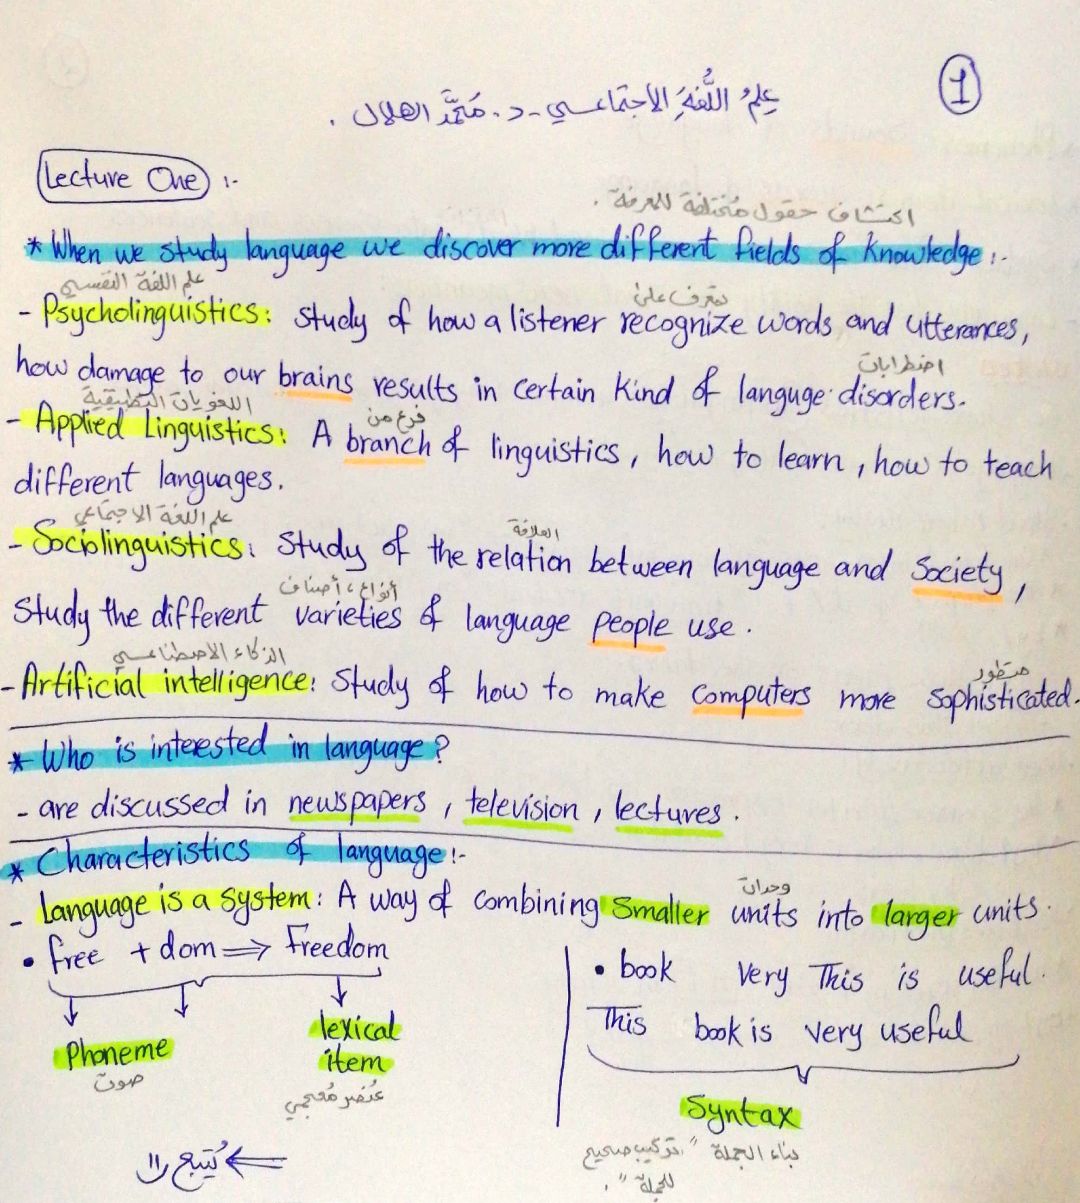 1
علمُ اللُّغةِ الاجتماعي - د. محمَّد الهلال .
Lecture One :-
اكتشاف حقول مُختلفة للمعرفة .
* When we study language we discover more different fields of Knowledge :-
علم اللغة النفسي
يتعرف على
- Psycholinguistics: study of how a listener recognize words and utterances,
اضطرابات
how damage to our brains results in certain kind of languge disorders.
اللغويات التطبيقية
فرع من
- Applied Linguistics: A branch of linguistics, how to learn, how to teach
different languages.
علم اللغة الاجتماعي
العلاقة
- Sociolinguistics: Study of the relation between language and Society,
أنواع، أصناف
Study the different varieties of language people use.
الذكاء الاصطناعي
متطور
- Artificial intelligence: Study of how to make computers more sophisticated.
* Who is interested in language?
- are discussed in newspapers, television, lectures.
* Characteristics of language:-
وحدات
- Language is a system: A way of combining smaller units into larger units.
• free + dom ⇒ Freedom
Phoneme
صوت
lexical
item
عُنصر مُعجمي
• book very This is useful.
This book is very useful
Syntax
بناء الجملة "تركيب صحيح
للجملة".
يُتبع //